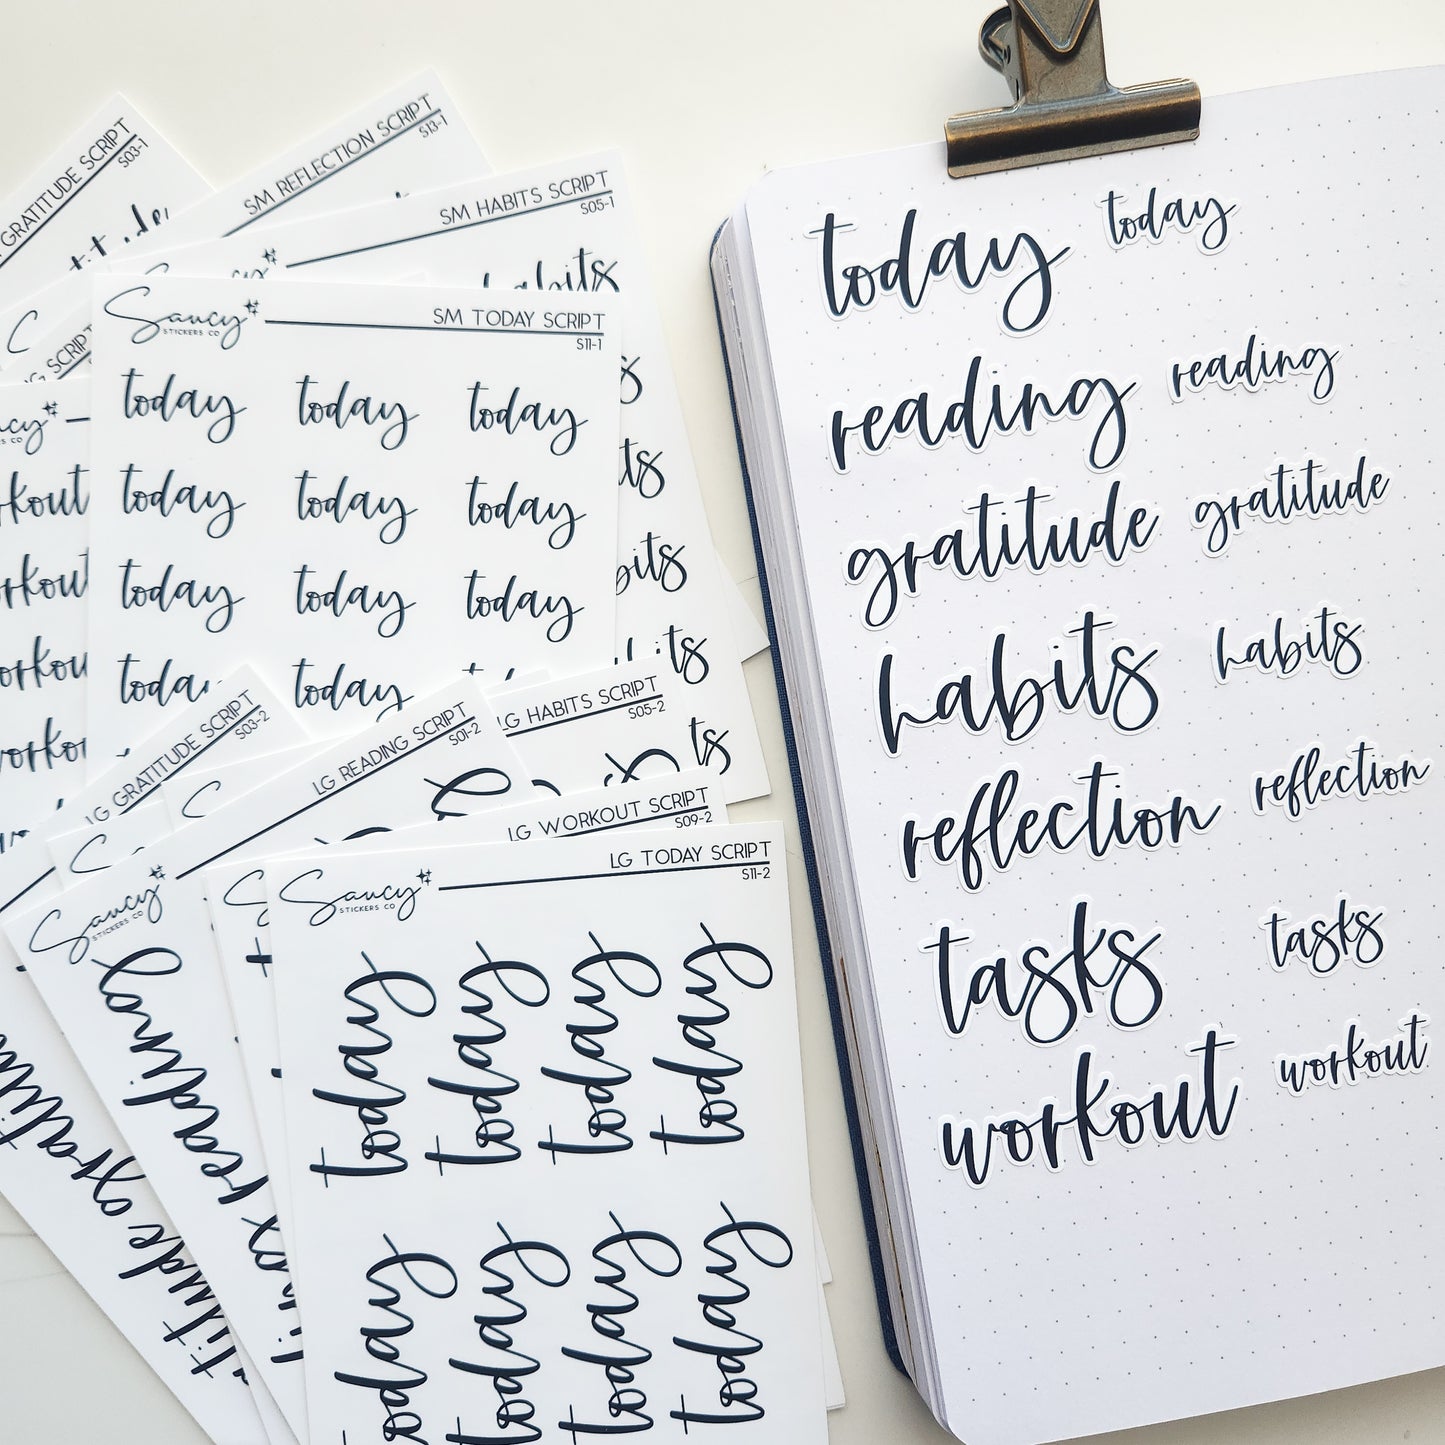 GRATITUDE SCRIPT
S03-1
SM REFLECTION SCRIPT
S13-1
SM HABITS SCRIPT
S05-1
habits
Saucy
STICKERS CO
SM TODAY SCRIPT
S11-1
today today today
today today today
today today today
today today
LG GRATITUDE SCRIPT
S03-2
LG READING SCRIPT
S01-2
LG HABITS SCRIPT
S05-2
LG WORKOUT SCRIPT
S09-2
Saucy
STICKERS CO
reading
Saucy
STICKERS CO
LG TODAY SCRIPT
S11-2
today today today today
today today today today
today today
reading reading
gratitude gratitude
habits habits
reflection reflection
tasks tasks
workout workout